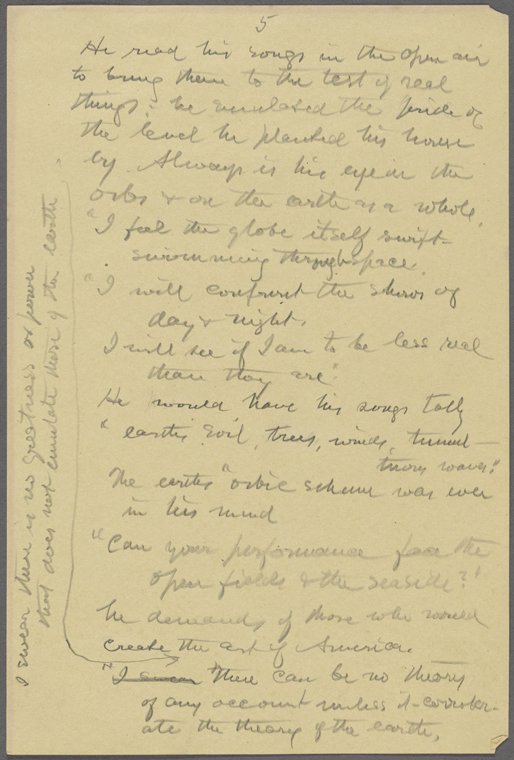 5
He read his songs in the open air
to bring them to the test of real
things; he emulated the pride of
the level he planted his house
by. Always is his eye on the
orbs & on the earth as a whole.
"I feel the globe itself swift-
swimming through space.
"I will confront the shows of
day & night.
I will see if I am to be less real
than they are".
He would have his songs tally
"earth's soil, trees, winds, tumult-
uous waves."
The earth's "orbic scheme was ever
in his mind
"Can your performance face the
open fields & the seaside?"
he demands of those who would
create the art of America.
"I swear "there can be no theory
of any account unless it corrobor-
ate the theory of the earth,
I swear there is no greatness or power
that does not emulate those of the earth